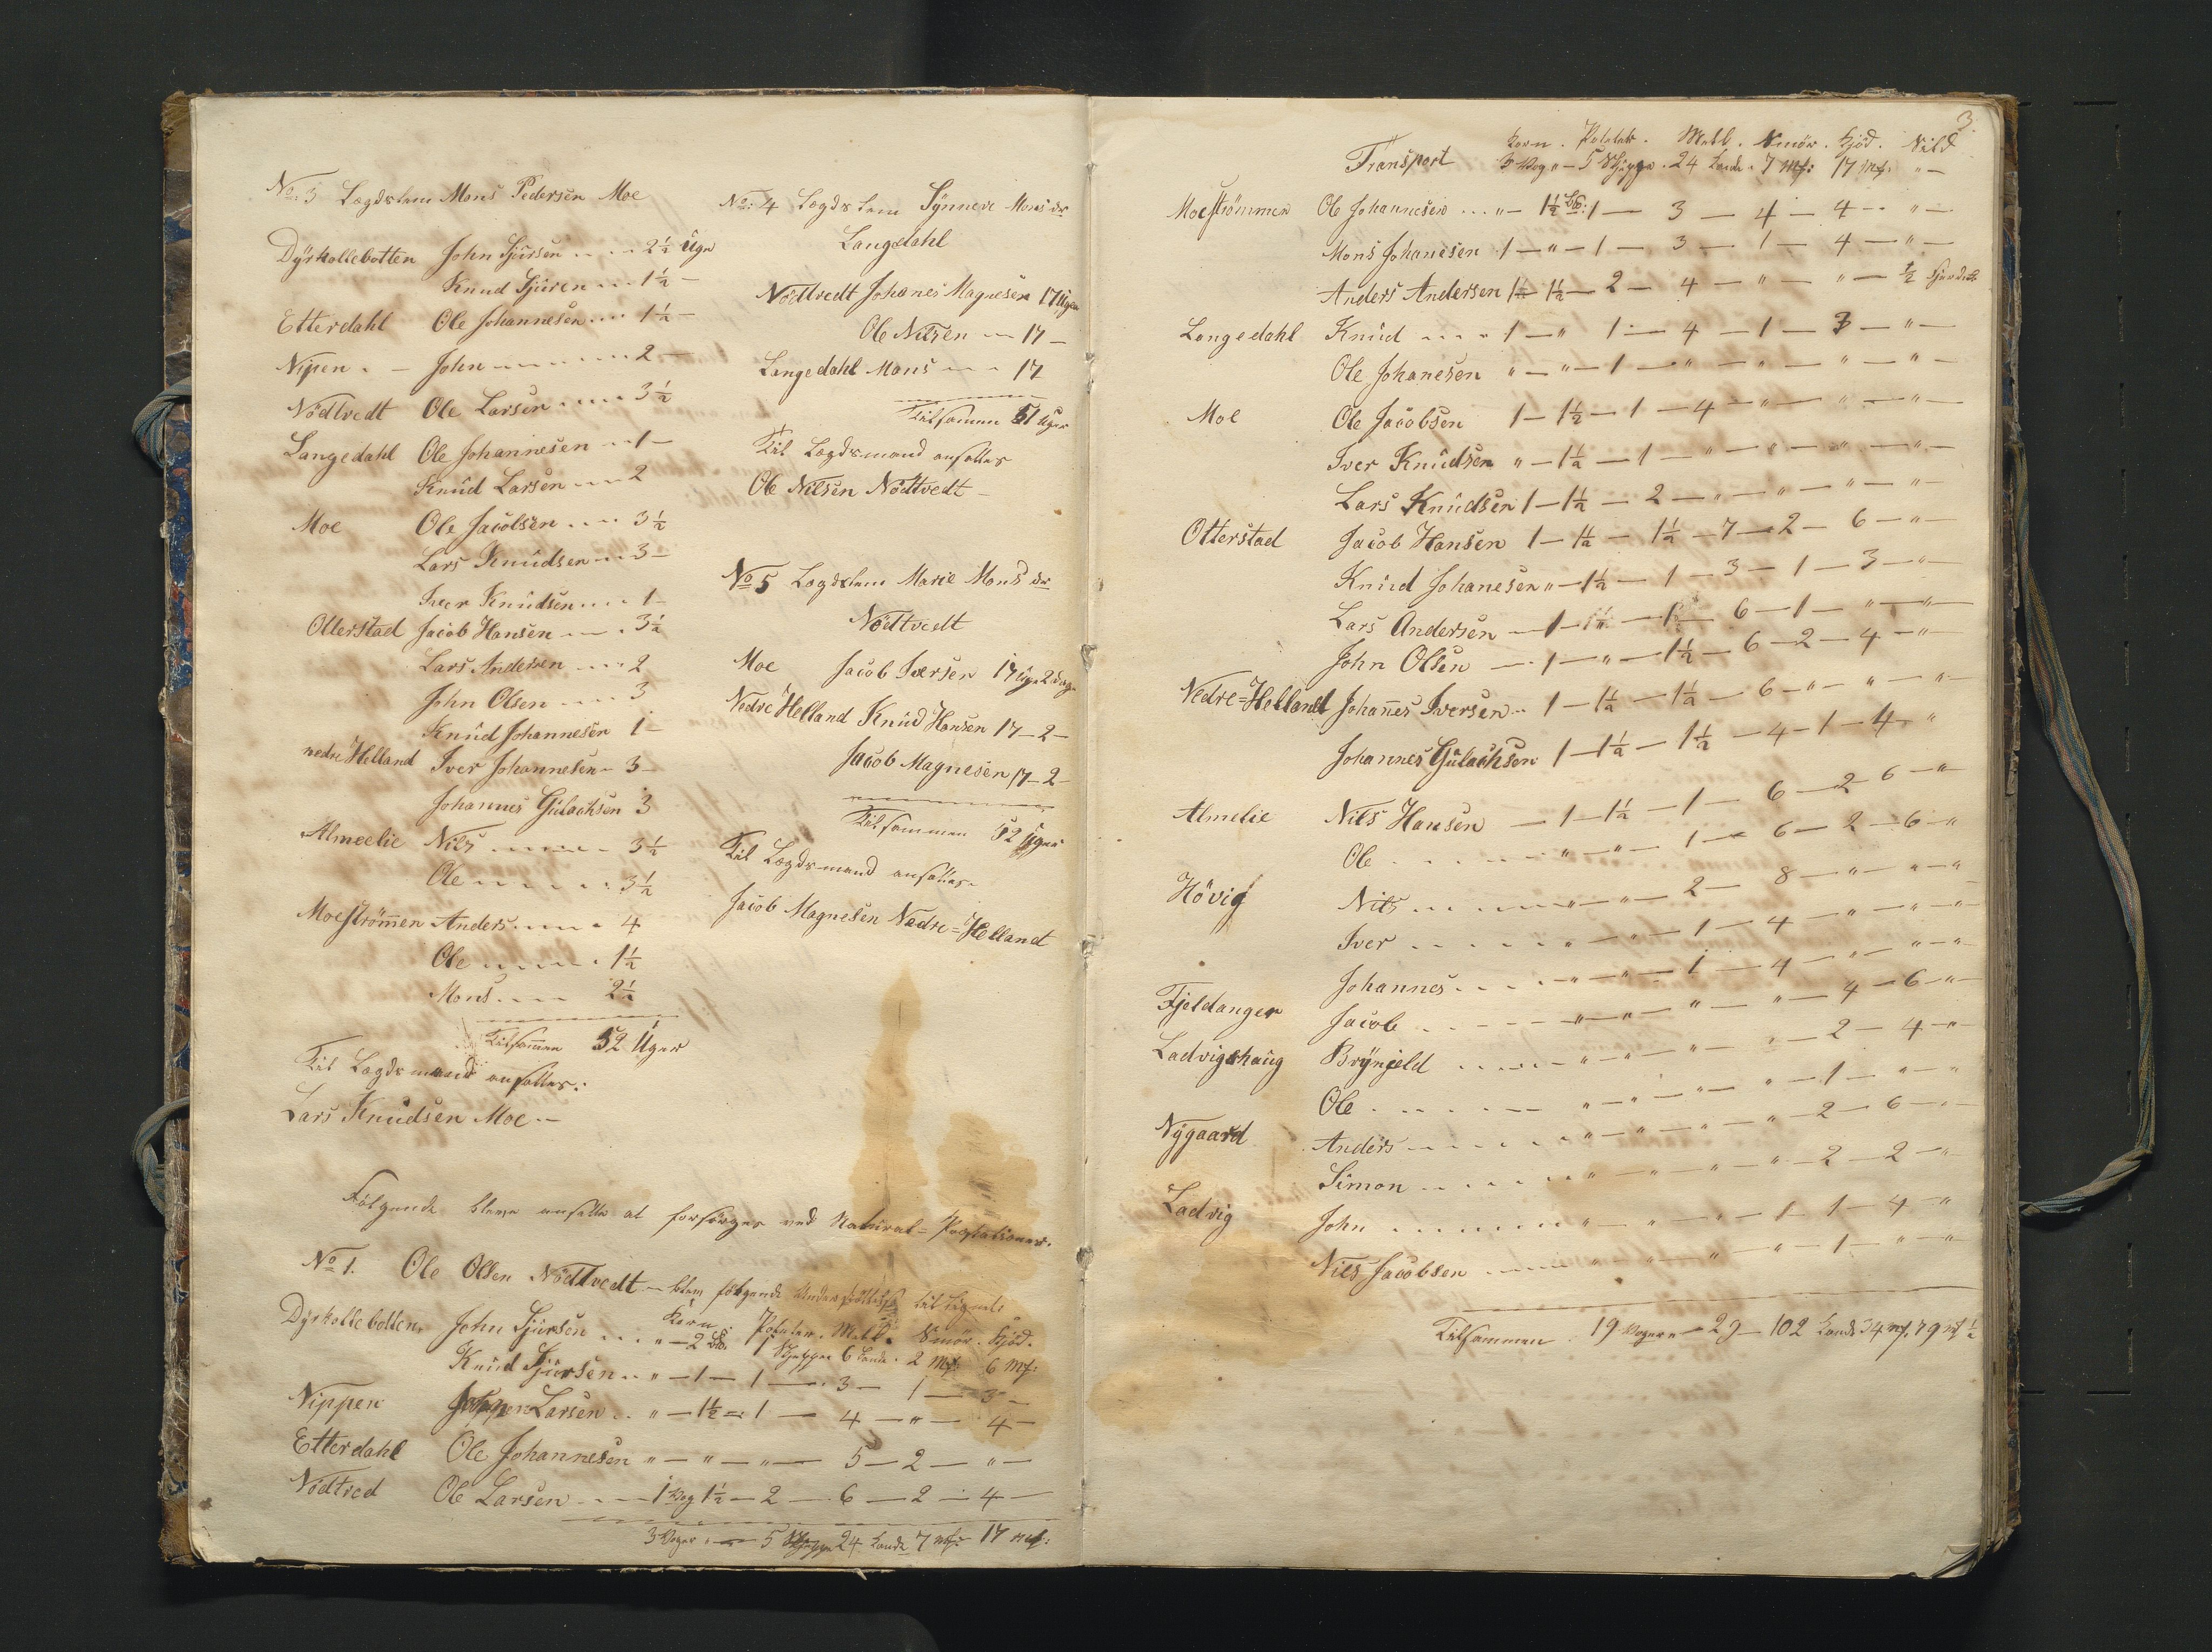 No: 3 Lægdslem Mons Pedersen Moe
Dÿrkollebotten John Sjursen .... 2½ Uger
Knud Sjuren ... 1½ —
Etterdahl Ole Johannesen .... 1½ —
Nipen . — John — — — 2 —
Nödtvedt Ole Larsen .... 3½
Langedahl Ole Johannesen — 1 —
Knud Larsen — — 2
Moe Ole Jacobsen .... 3½
Lars Knudsen — 3 —
Iver Knudsen .... 1 —
Otterstad Jacob Hansen — . 3½
Lars Andersen .... 2
John Olsen .... 3
Knud Johannesen 1 —
nedre Helland Iver Johannesen — 3 —
Johannes Gulachsen 3
Almeelie Nils ........ 3½
Ole ........ 3½
Moeströmen Anders ..... 4
Ole ........ 1½
Mons .... 2½
Tilsamen 52 Uger
Til Lægdsmand ansattes:
Lars Knudsen Moe —
No: 4 Lægdslem Synneve Monsdr
Langedahl
Nödtvedt Johanes Magnesen 17 Uger
Ole Nilsen — 17 —
Langedahl Mons — . 17
Tilsammen 51 Uger
Til Lægdsmand ansattes
Ole Nilsen Nödtvedt —
No 5 Lægdslem Marie Monsdr
Nödtvedt
Moe Jacob Iversen 17 Uge 2 Dage
Nedre Helland Knud Hansen 17 — 2 —
Jacob Magnesen 17 — 2 —
Tilsammen 52 Uger
Til Lægdsmand ansattes.
Jacob Magnesen Nedre=Helland
Fölgende bleve ansatte at forsörges ved Natural=Præstationer.
No 1. Ole Olsen Nödtvedt — blev fölgende Understöttelse tillignet
Korn. Potater. Mell. Smör. Kjöd.
Dÿrkollebotten John Sjursen ... " — 2 1 Skjeppe 6 Kande. 2 Mk: 6 Mk:
Knud Sjursen .. " — 1 — 1 — 3 — 1 — 3 —
Nippen Larsen .. " — 1½ — 1 — 4 — " — 4 —
Etterdahl Ole Johannesen " — " — " — 5 — 2 — " —
Nödtved Ole Larsen — . — 1 Vog 1½ — 2 — 6 — 2 — 4 —
3 Voger " — 5 Skjeppe 24 Kande 7 Mk: 17 Mk:
3.
Korn. Potater. Mell. Smör. Kjöd. Sild
Transport 3 Vog " — 5 Skjeppe . 24 Kande. 7 Mk: 17 Mk. " —
Moeströmmen Ole Johannesen ... " — 1½ 1 — 3 — 4 — 4 — " —
Mons Johanesen 1 — " — 1 — 3 — 1 — 4 — " —
Anders Andersen 1 — 1½ — 2 — 4 — " — " — ½
Langedahl Knud .... 1 — " 1 — 4 — 1 — 3 — " —
Ole Johanesen " — " — 1 — " — " — " — " —
Moe Ole Jacobsen 1 — 1½ — 1 — 4 — " — " — " —
Iver Knudsen " — 1½ — 1 — " — " — " — " —
Lars Knudsen 1 — 1½ — 2 — " — " — " — " —
Otterstad Jacob Hansen 1 — 1½ — 1½ — 7 — 2 — 6 — " —
Knud Johanesen " — 1½ — 1 — 3 — 1 — 3 — " —
Lars Andersen — 1 — 1½ — 1 — 6 — 1 — " — " —
John Olsen — 1 — " — 1½ — 6 — 2 — 4 — " —
Nedre=Helland Johañes Iversen — 1 — 1½ — 1½ — 6 — " — " — " —
Johannes Gulachsen 1 — 1½ — 1½ — 4 — 1 — 4 — "
Almelie Nils Hansen — 1 — 1½ — 1 — 6 — 2 — 6 — "
Ole ...... " — " — 1 — 6 — 2 — 6 — "
Hövig Nils ...... " — " — 2 — 8 — " — " — "
Iver ...... " — " — 1 — 4 — " — " — "
Johannes ..... " — " — 1 — 4 — " — " — "
Fjeldanger Jacob ...... " — " — " — " — 4 — 6 — "
Ladvigshaug Brÿnjeld ...... " — " — " — " — 2 — 4 — "
Ole ...... " — " — " — " — 1 — " — "
Nÿgaard Anders ...... " — " — " — " — 2 — 6 — "
Simon ...... " — " — " — " — 2 — 2 — "
Ladvig John ...... " — " — " — 1 — 1 — 4 — "
Nils Jacobsen ...... " — " — " — " — 1 — " — "
Tilsammen . 19 Voger " — 29 — 102 Kande 34 Mk. 79 Mk ½